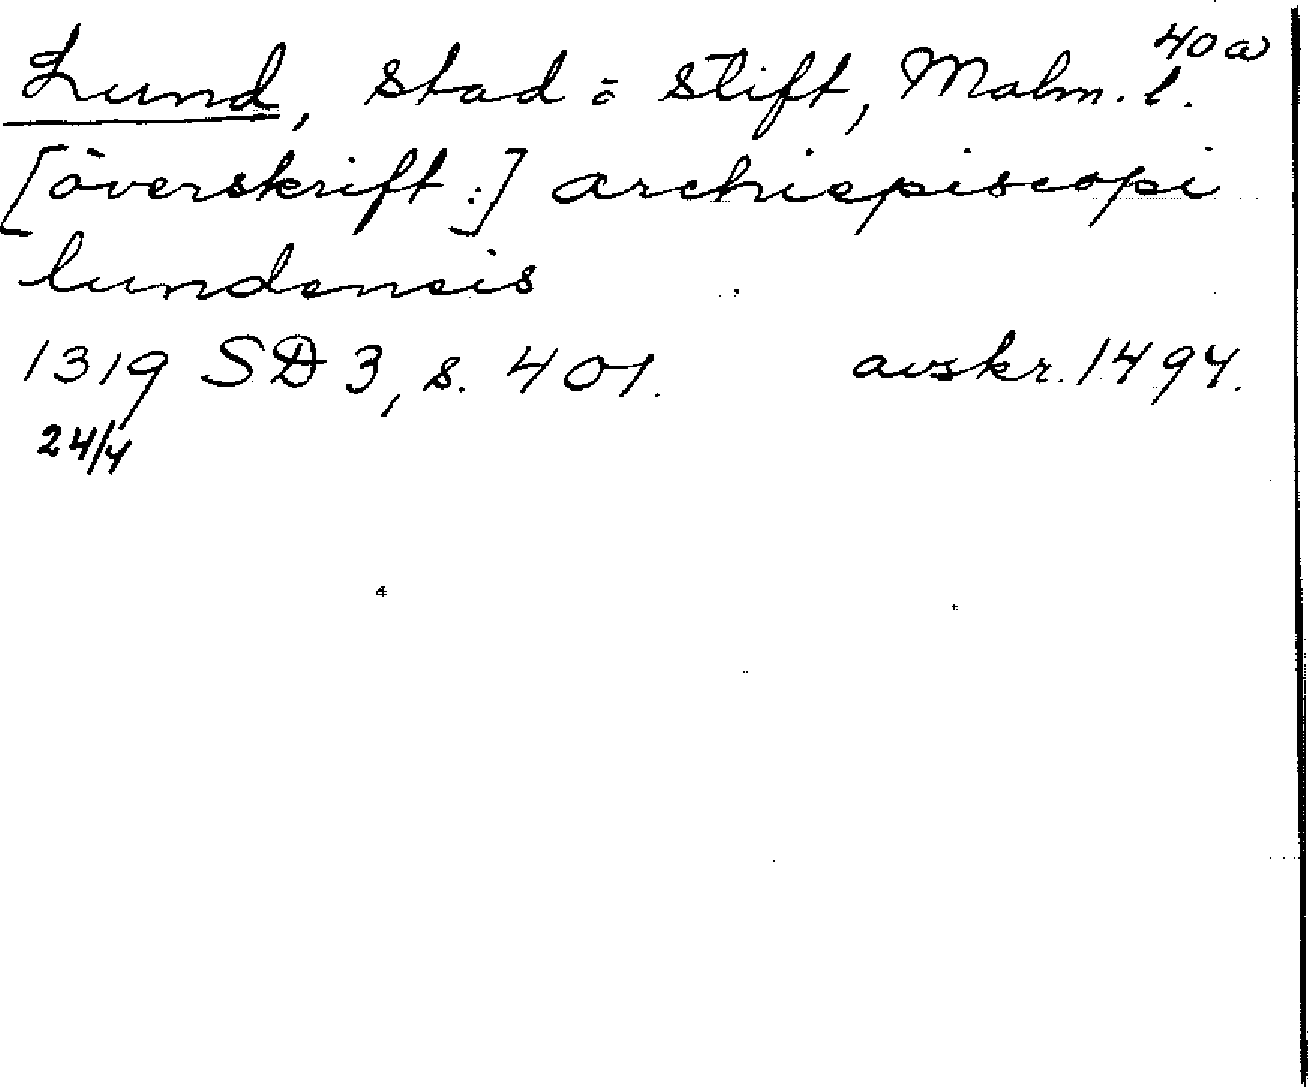 40a
Lund, stad o. stift, Malm. l.
[överskrift:] archiepiscopi
lundensis
1319 SD 3, s. 401. avskr. 1494.
24/4